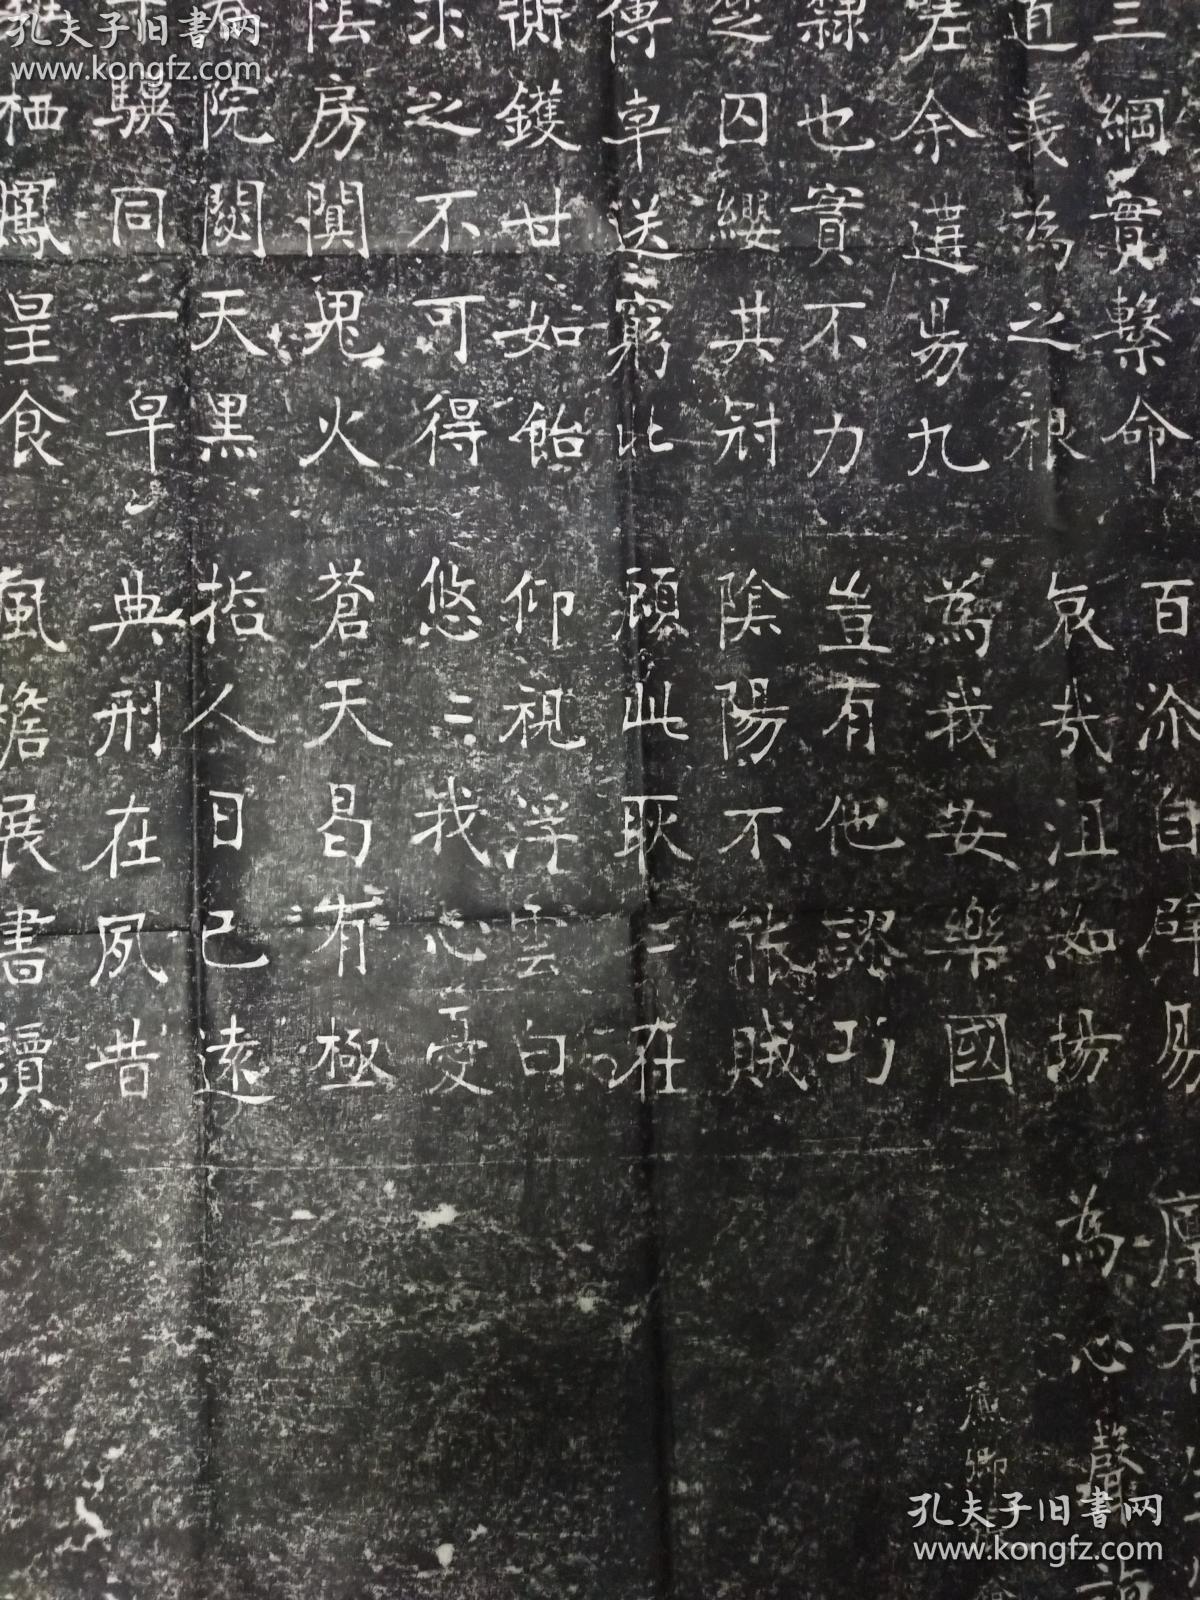 孔夫子旧书网
www.kongfz.com
三綱實繫命 百沴自辟易
道義為之根 哀哉沮洳場 為心聲
嗟余遘易九 為我安樂國
隸也實不力 豈有他謬巧
楚囚纓其冠 陰陽不能賊
傳車送窮北 顧此耿〻在
鼎鑊甘如飴 仰視浮雲白
求之不可得 悠〻我心憂
陰房闃鬼火 蒼天曷有極
春院閟天黑 指人日已遠
驥同一皁 典刑在夙昔
栖鳳皇食 風檐展書讀
孔夫子旧书网
www.kongfz.com